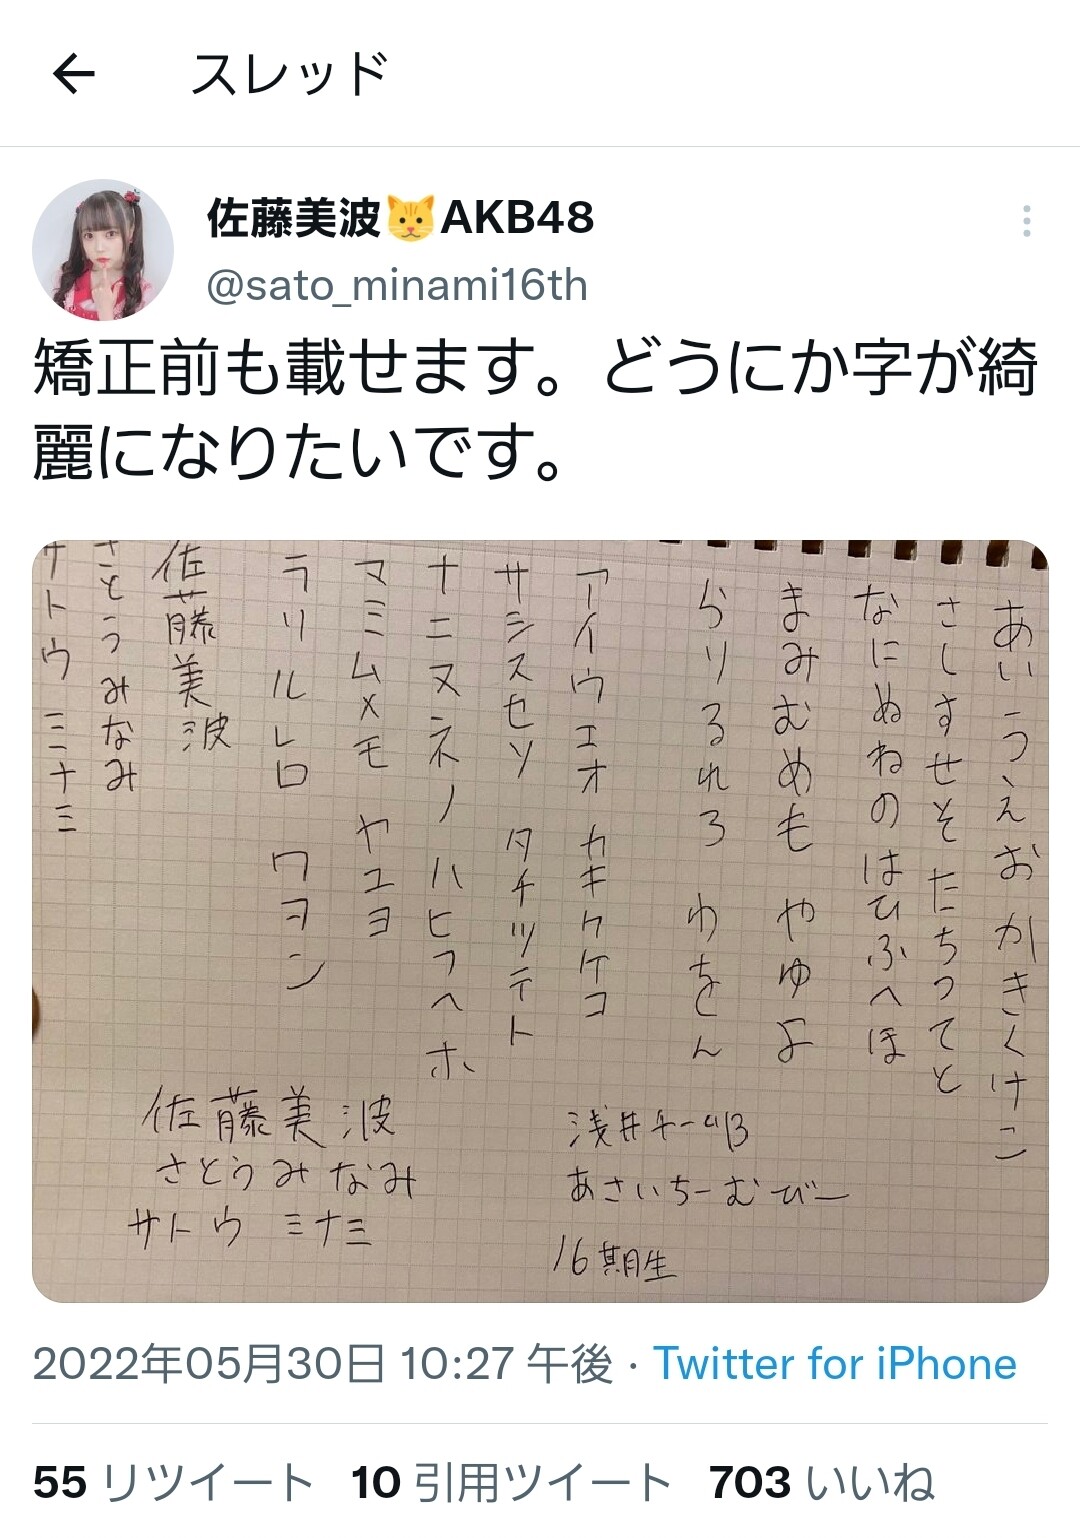 スレッド
佐藤美波🐱AKB48
@sato_minami16th
矯正前も載せます。どうにか字が綺
麗になりたいです。
あいうえお かきくけこ
さしすせそ たちつてと
なにぬねの はひふへほ
まみむめも やゆよ
らりるれろ わをん
アイウエオ カキクケコ
サシスセソ タチツテト
ナニヌネノ ハヒフヘホ
マミムメモ ヤユヨ
ラリルレロ ワヲン
佐藤美波
さとうみなみ
サトウ ミナミ
佐藤美波
さとうみなみ
サトウ ミナミ
浅井チー
あさいちーむびー
16期生
2022年05月30日 10:27 午後 · Twitter for iPhone
55 リツイート 10 引用ツイート 703 いいね